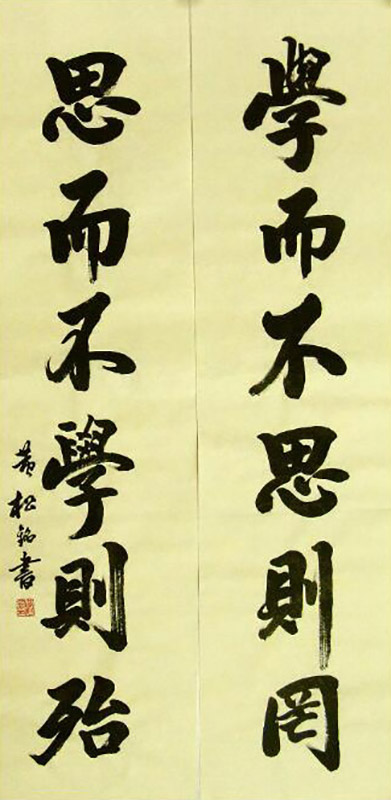 學而不思則罔
思而不學則殆
黃松銘書